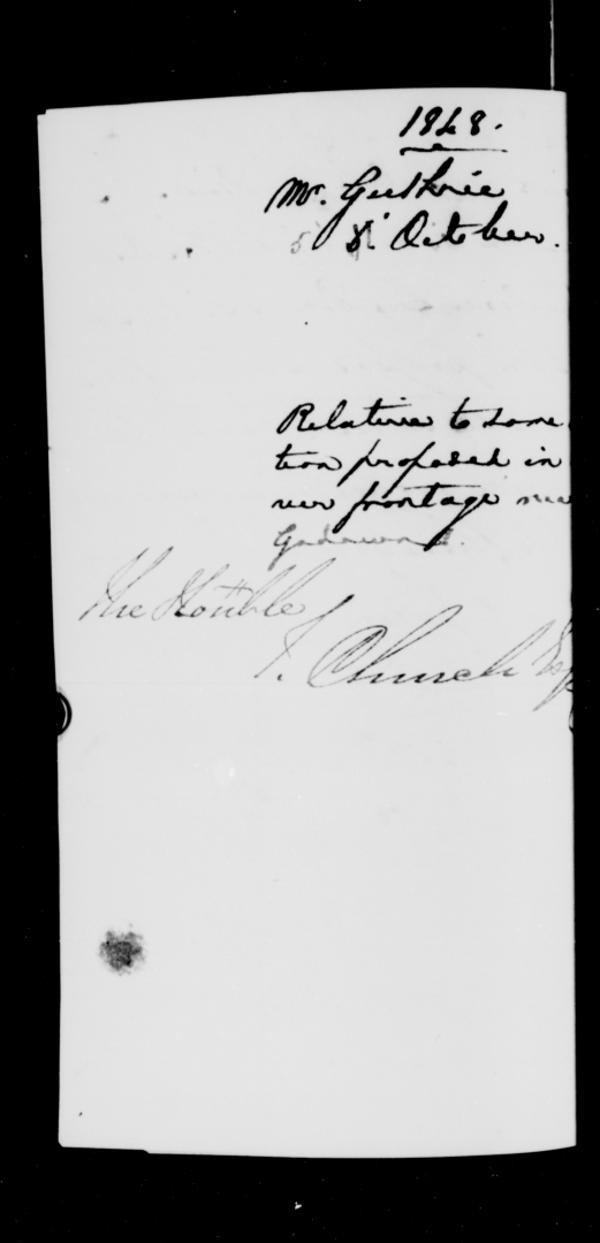 1848.
Mr. Guthrie
8th October.
Relative to some
tion proposed in
ver frontage nea
The Honble
F. Church Esq